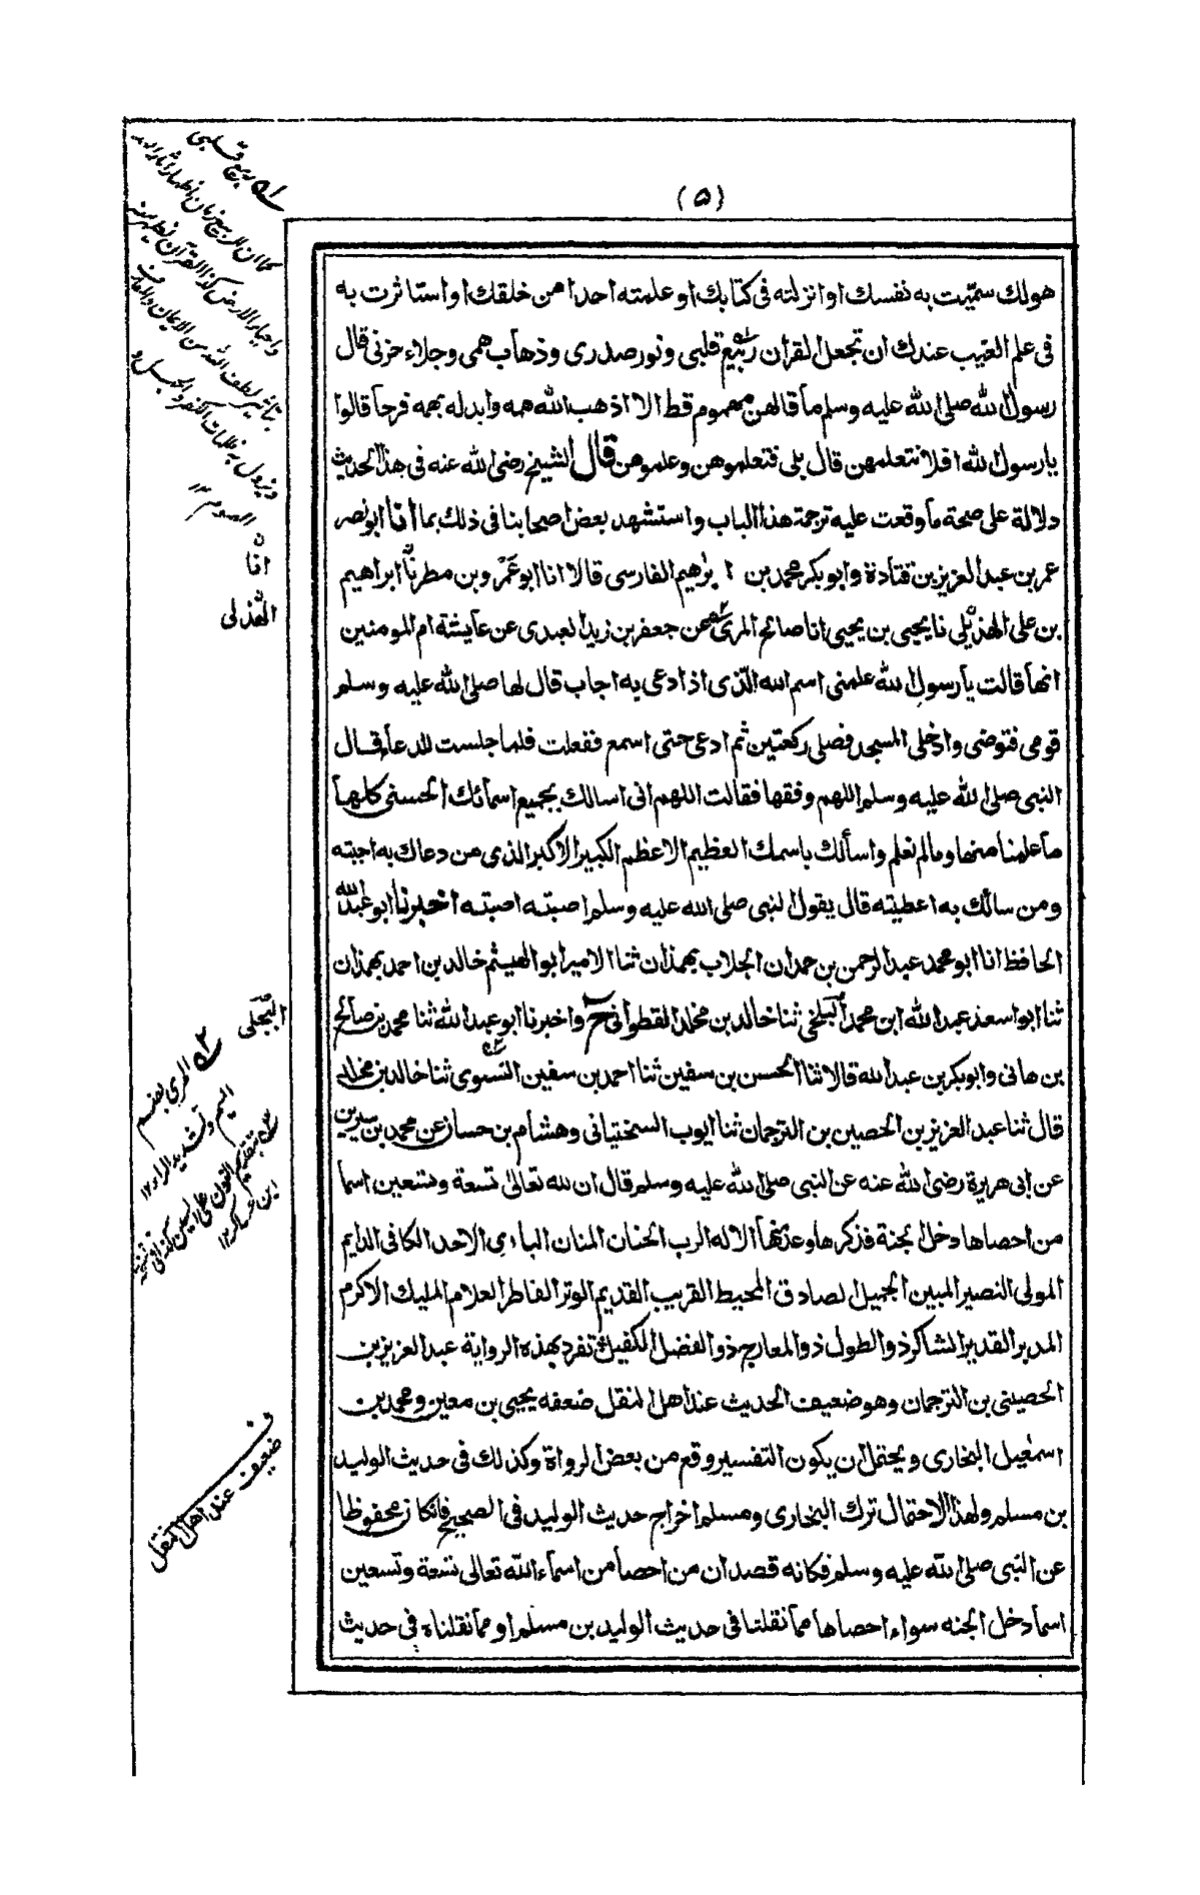 (۵)
هولك سميّت به نفسك او انزلته فى كتابك او علمته احدا من خلقك او استاثرت به
فى علم الغيب عندك ان تجعل القرآن ربيع قلبى ونور صدرى وذهاب همى وجلاء حزنى قال
رسول الله صلى الله عليه وسلم ما قالهن مهموم قط الا اذهب الله همه وابدله بهمه فرجا قالوا
يا رسول الله افلا نتعلمهن قال بلى فتعلموهن وعلموهن قال الشيخ رضى الله عنه فى هذا الحديث
دلالة على صحة ما وقعت عليه ترجمة هذا الباب واستشهد بعض اصحابنا فى ذلك بما انا ابو نصر
عمر بن عبد العزيز بن قتادة وابو بكر محمد بن ابرٰهيم الفارسى قالا انا ابو عَمْرو بن مطر نا ابراهيم
بن على الهذلى نا يحيى بن يحيى انا صالح المرى عن جعفر بن زيد العبدى عن عايشة ام المومنين
انها قالت يا رسول الله علمنى اسم الله الّذى اذا دعى به اجاب قال لها صلى الله عليه وسلم
قومى فتوضى وادخلى المسجد فصلى ركعتين ثم ادعى حتى اسمع ففعلت فلما جلست للدعاء قال
النبى صلى الله عليه وسلم اللهم وفقها فقالت اللهم انى اسالك بجميع اسمائك الحسنى كلها
ما علمنا منها وما لم نعلم واسألك باسمك العظيم الاعظم الكبير الاكبر الذى من دعاك به اجبته
ومن سالك به اعطيته قال يقول النبى صلى الله عليه وسلم اصبته اصبته اخبرنا ابو عبد الله
الحافظ انا ابو محمد عبد الرحمن بن حمدان الجلاب بهمذان ثنا الامير ابو الهيثم خالد بن احمد بهمذان
ثنا ابو اسعد عبد الله ابن محمد البلخى ثنا خالد بن مخلد القطوانى ح واخبرنا ابو عبد الله ثنا محمد بن صالح
بن هانى وابو بكر بن عبد الله قالا ثنا الحسن بن سفين ثنا احمد بن سفين النسوى ثنا خالد بن مخلد
قال ثنا عبد العزيز بن الحصين بن الترجمان ثنا ايوب السختيانى وهشام بن حسان عن محمد بن سيرين
عن ابى هريرة رضى الله عنه عن النبى صلى الله عليه وسلم قال ان لله تعالىٰ تسعة وتسعين اسما
من احصاها دخل الجنة فذكرها وعدّ منها الاله الرب الحنان المنان البارى الاحد الكافى الدايم
المولى النصير المبين الجميل الصادق المحيط القريب القديم الوتر الفاطر العلام المليك الاكرم
المدبر القدير الشاكر ذو الطول ذو المعارج ذو الفضل الكفيل تفرد بهذه الرواية عبد العزيز بن
الحصينى بن الترجمان وهو ضعيف الحديث عند اهل النقل ضعفه يحيى بن معين ومحمد بن
اسمٰعيل البخارى ويحتمل ان يكون التفسير وقع من بعض الرواة وكذلك فى حديث الوليد
بن مسلم ولهذا الاحتمال ترك البخارى ومسلم اخراج حديث الوليد فى الصحيح فان كان محفوظا
عن النبى صلى الله عليه وسلم فكانه قصد ان من احصا من اسماء الله تعالى تسعة وتسعين
اسما دخل الجنه سواء احصاها مما نقلنا فى حديث الوليد بن مسلم او مما نقلناه فى حديث
ربيع قلبى
كما ان الربيع زمان اظهار آثار
واحياء الارض كذا القرآن يظهر منه
تاثير لطف الله من الايمان والمعارف
ويزول به ظلمات الكفر والجهل و
الهموم ١٢
ن
انا
الهُذلى
البجلى
المرى بضم
الميم وتشديد الراء ١٢
بتقديم النون على السين كذا فى نسخة
ابن عساكر ١٢
ف
ضعيف عند اهل النقل